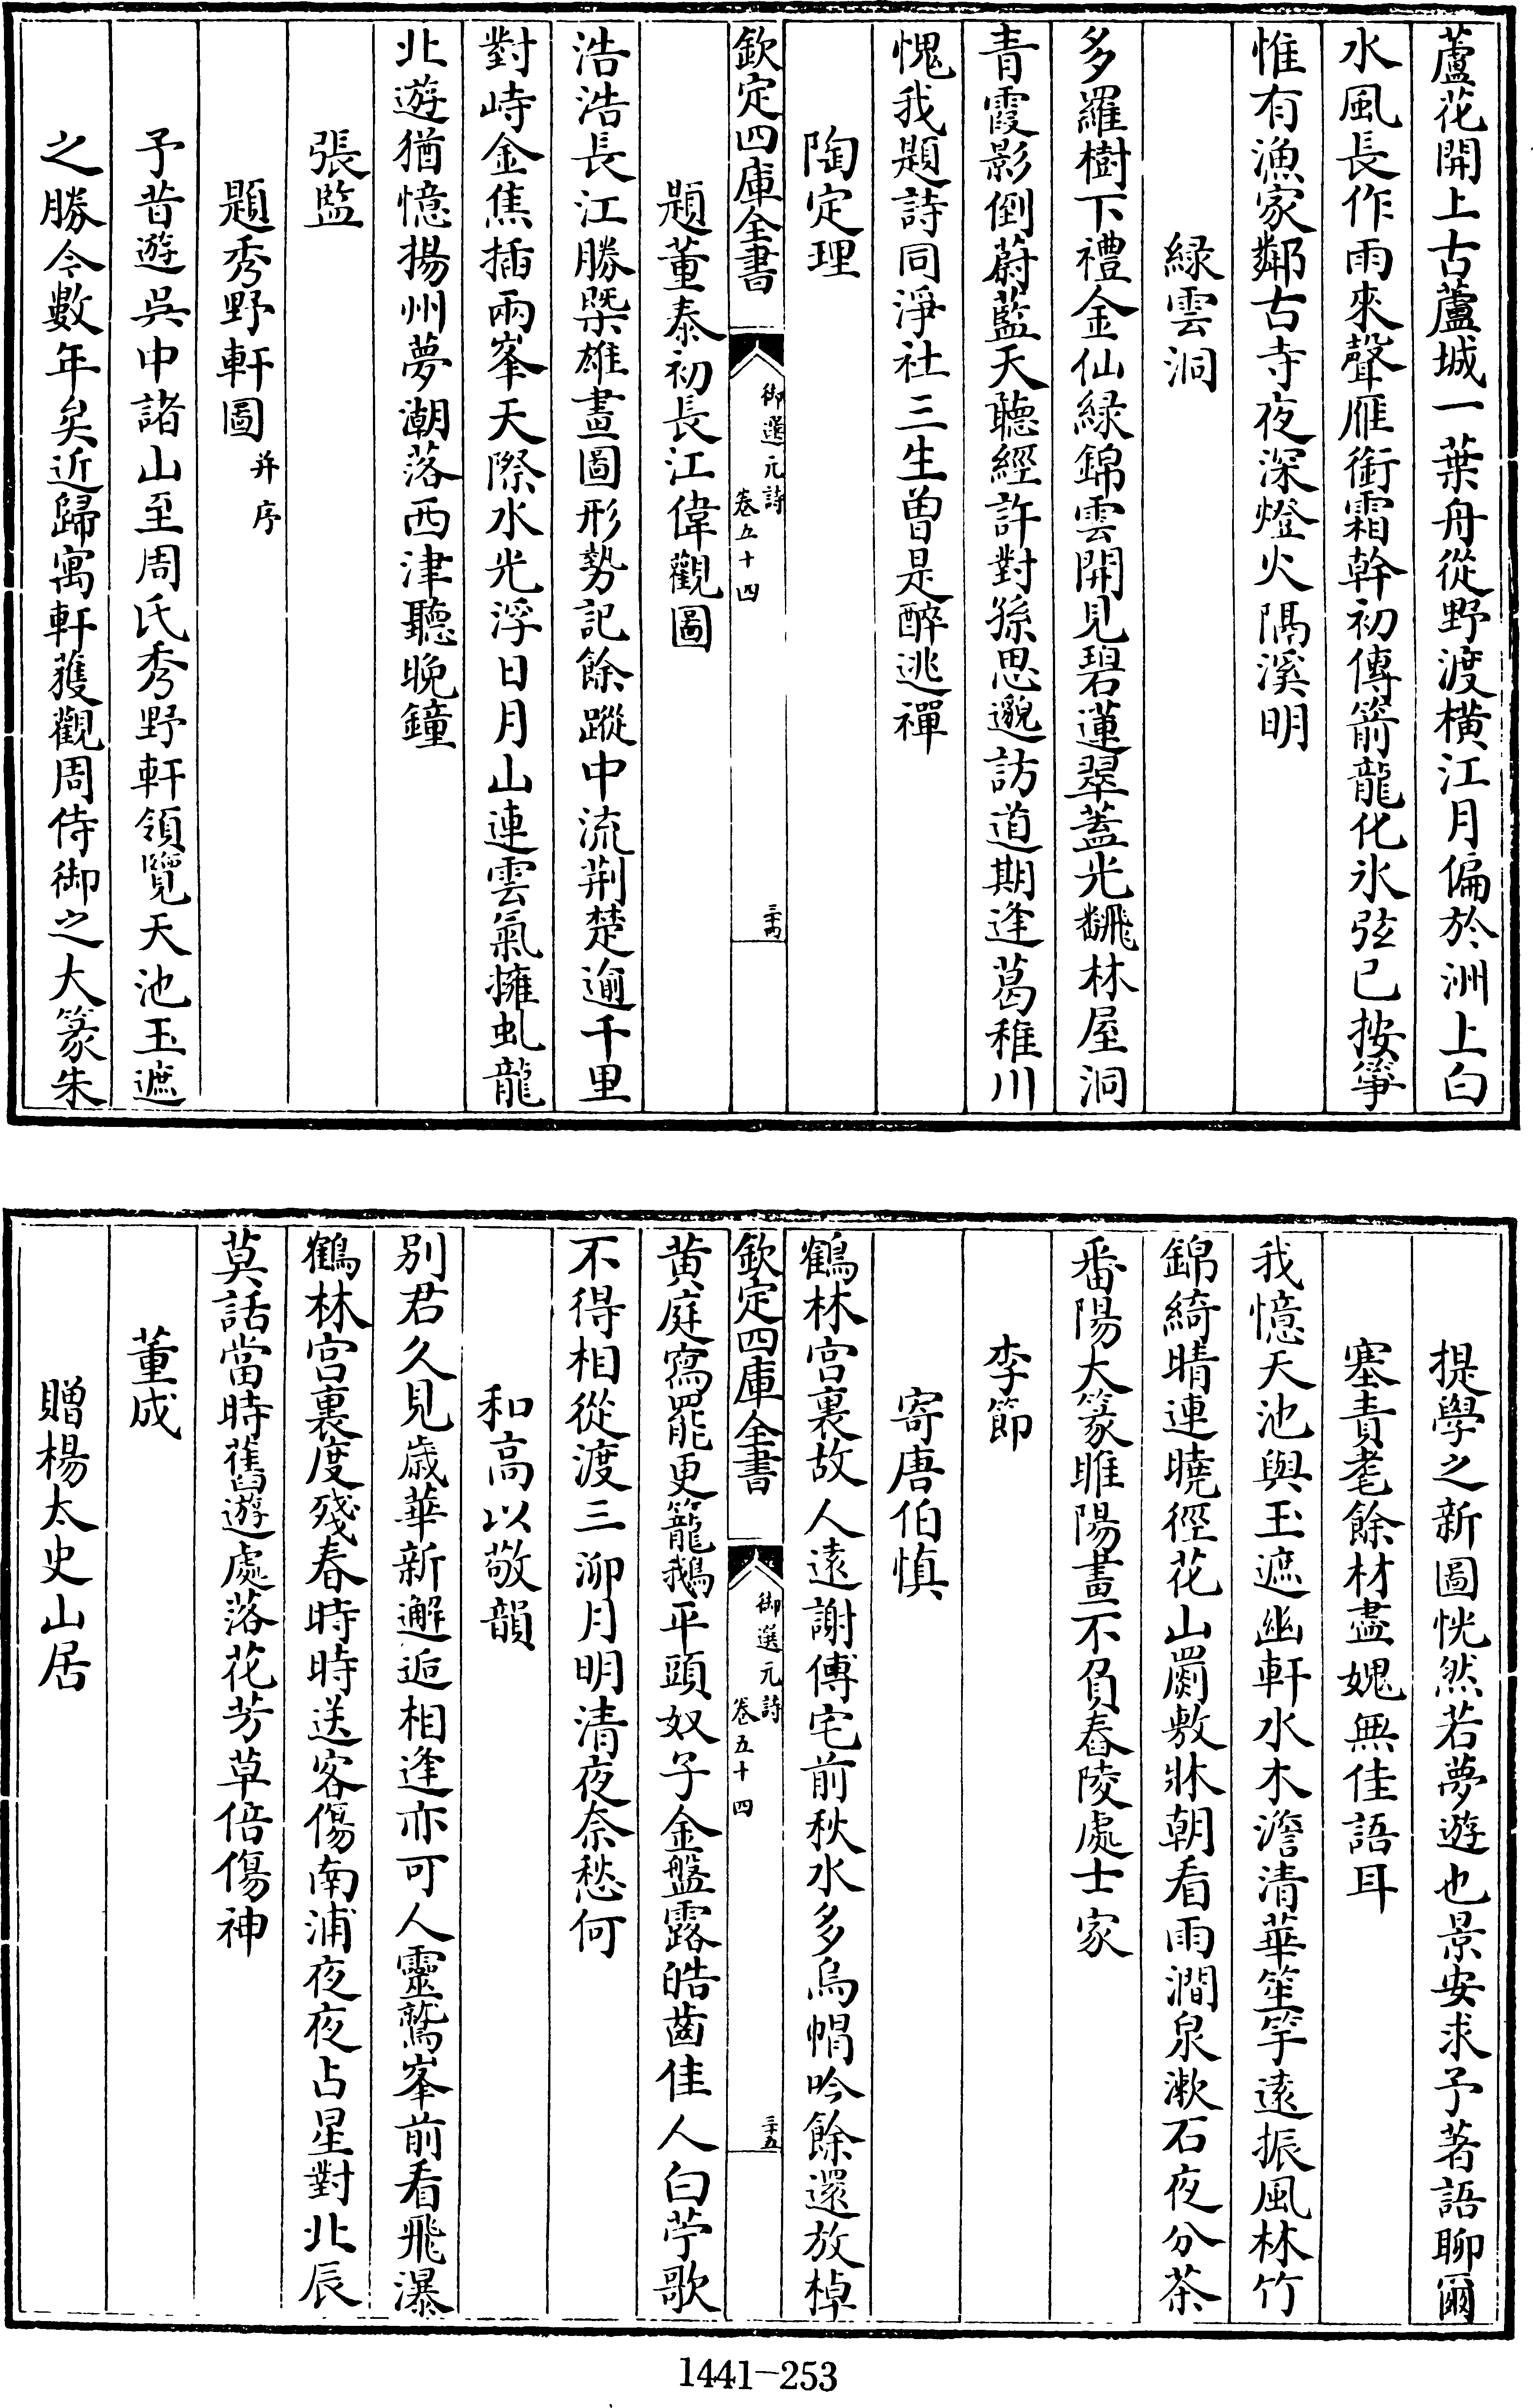 蘆花開上古蘆城一葉舟從野渡橫江月偏於洲上白
水風長作雨來聲雁銜霜幹初傳箭龍化氷弦已按箏
惟有漁家鄰古寺夜深燈火隔溪明
緑雲洞
多羅樹下禮金仙緑錦雲開見碧蓮翠蓋光飜林屋洞
青霞影倒蔚藍天聽經許對孫思邈訪道期逢葛稚川
愧我題詩同淨社三生曾是醉逃禪
陶定理
欽定四庫全書
御選元詩
卷五十四
三十四
題董泰初長江偉觀圖
浩浩長江勝槩雄畫圖形勢記餘蹤中流荆楚逾千里
對峙金焦插兩峯天際水光浮日月山連雲氣擁虬龍
北遊猶憶揚州夢潮落西津聽晚鐘
張監
題秀野軒圖并序
予昔遊吳中諸山至周氏秀野軒領覽天池玉遮
之勝今數年矣近歸寓軒獲觀周侍御之大篆朱
提學之新圖恍然若夢遊也景安求予著語聊爾
塞責耄餘材盡媿無佳語耳
我憶天池與玉遮幽軒水木澹清華笙竽遠振風林竹
錦綺晴連曉徑花山罽敷牀朝看雨澗泉漱石夜分茶
番陽大篆睢陽畫不負舂陵處士家
李節
寄唐伯慎
鶴林宫裏故人遠謝傅宅前秋水多烏帽吟餘還放棹
欽定四庫全書
御選元詩
卷五十四
三十五
黄庭寫罷更籠鵝平頭奴子金盤露皓齒佳人白苧歌
不得相從渡三泖月明清夜奈愁何
和高以敬韻
别君久見歲華新邂逅相逢亦可人靈鷲峯前看飛瀑
鶴林宫裏度殘春時時送客傷南浦夜夜占星對北辰
莫話當時舊遊處落花芳草倍傷神
董成
贈楊太史山居
1441-253